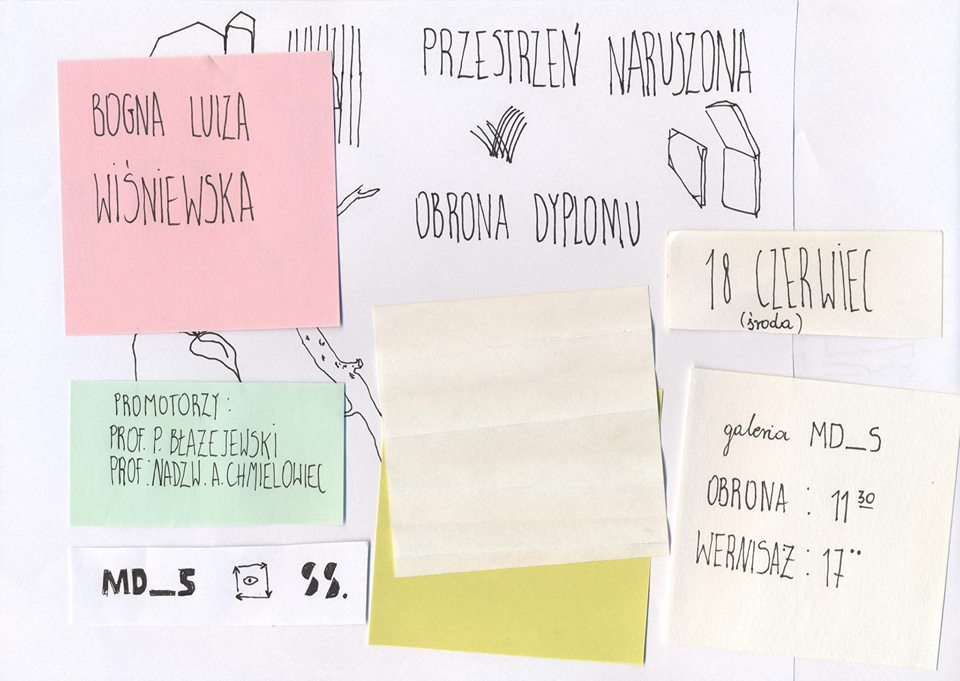 PRZESTRZEŃ NARUSZONA
BOGNA LUIZA
WIŚNIEWSKA
OBRONA DYPLOMU
18 CZERWIEC
(środa)
PROMOTORZY:
PROF. P. BŁAŻEJEWSKI
PROF. NADZW. A. CHMIELOWIEC
galeria MD_S
OBRONA : 11 30
WERNISAŻ : 17 ..
MD_S SS.